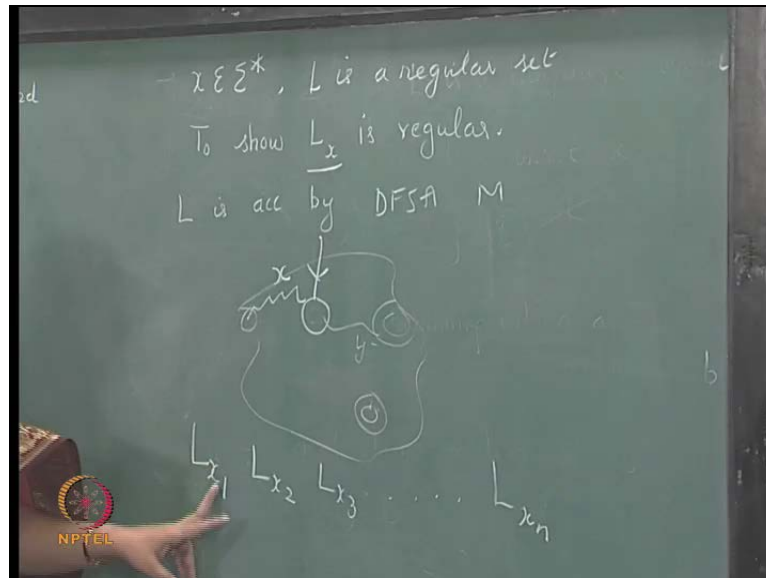 x ε Σ*, L is a regular set
To show L_x is regular.
L is acc by DFSA M
x
y
b
L_x1 L_x2 L_x3 ..... L_xn
NPTEL